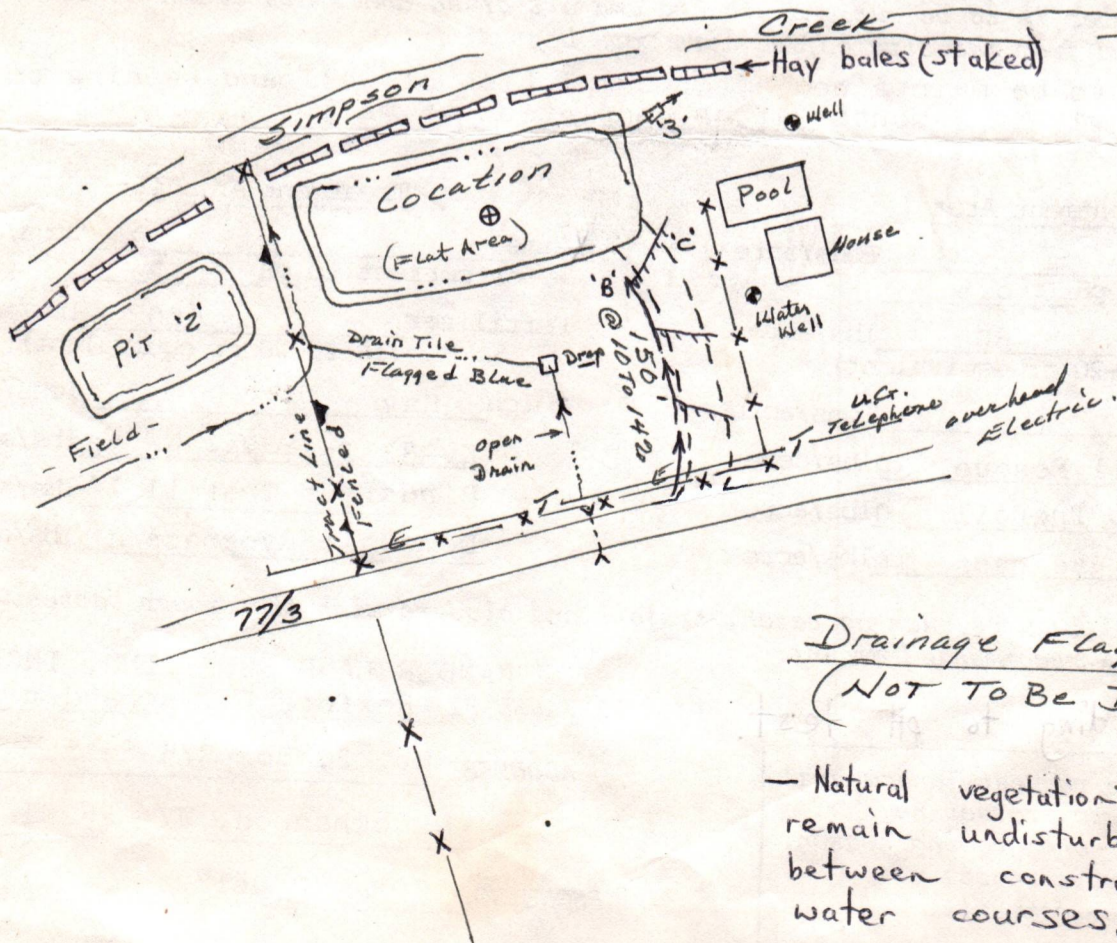 Creek
Simpson
Hay bales (staked)
'3'
Well
Location
(Flat Area)
Pool
House
'C'
'B'
150' @ 10 TO 14%
Water
Well
PiT '2'
Drain Tile
Flagged Blue
Drop
Field
open
Drain
Tract line
Fenced
Telephone
overhead
Electric
E
T
E
T
E
77/3
Drainage Fla
(NOT TO BE D
— Natural vegetation
remain undisturb
between constr
water courses